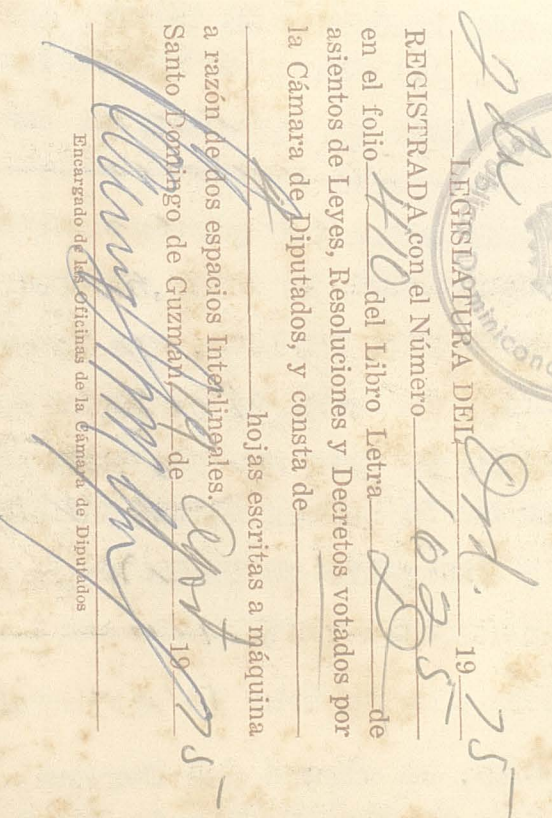 2da LEGISLATURA DEL Ord. 1975
REGISTRADA con el Número 1625
en el folio 410 del Libro Letra de
asientos de Leyes, Resoluciones y Decretos votados por
la Cámara de Diputados, y consta de
hojas escritas a máquina
a razón de dos espacios Interlineales.
Santo Domingo de Guzmán, de Sept 1975
Encargado de las Oficinas de la Cámara de Diputados
Dominicana